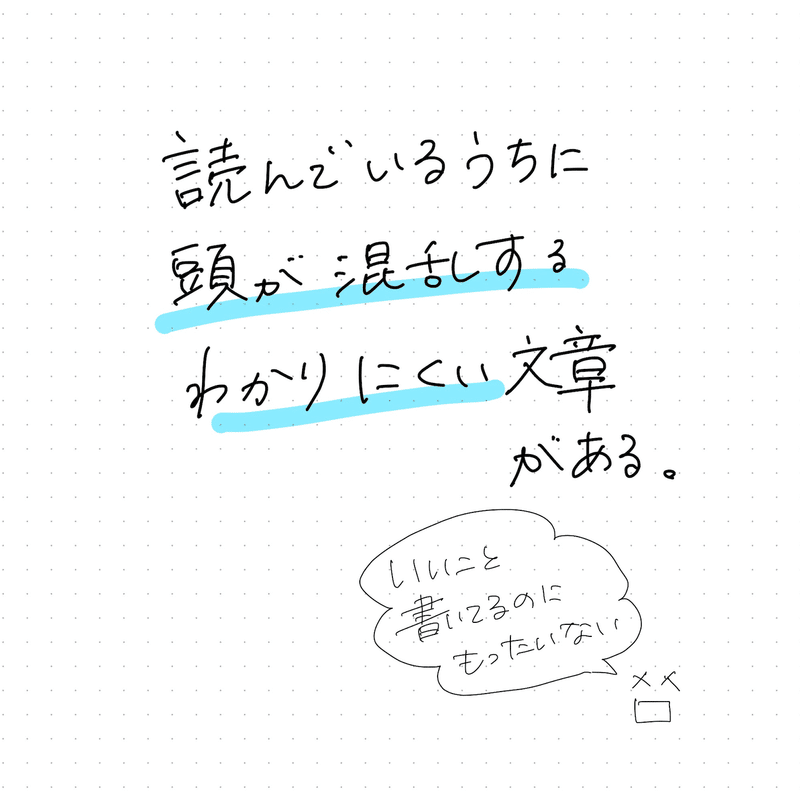 読んでいるうちに
頭が混乱する
わかりにくい文章
がある。
いいこと
書いてるのに
もったいない